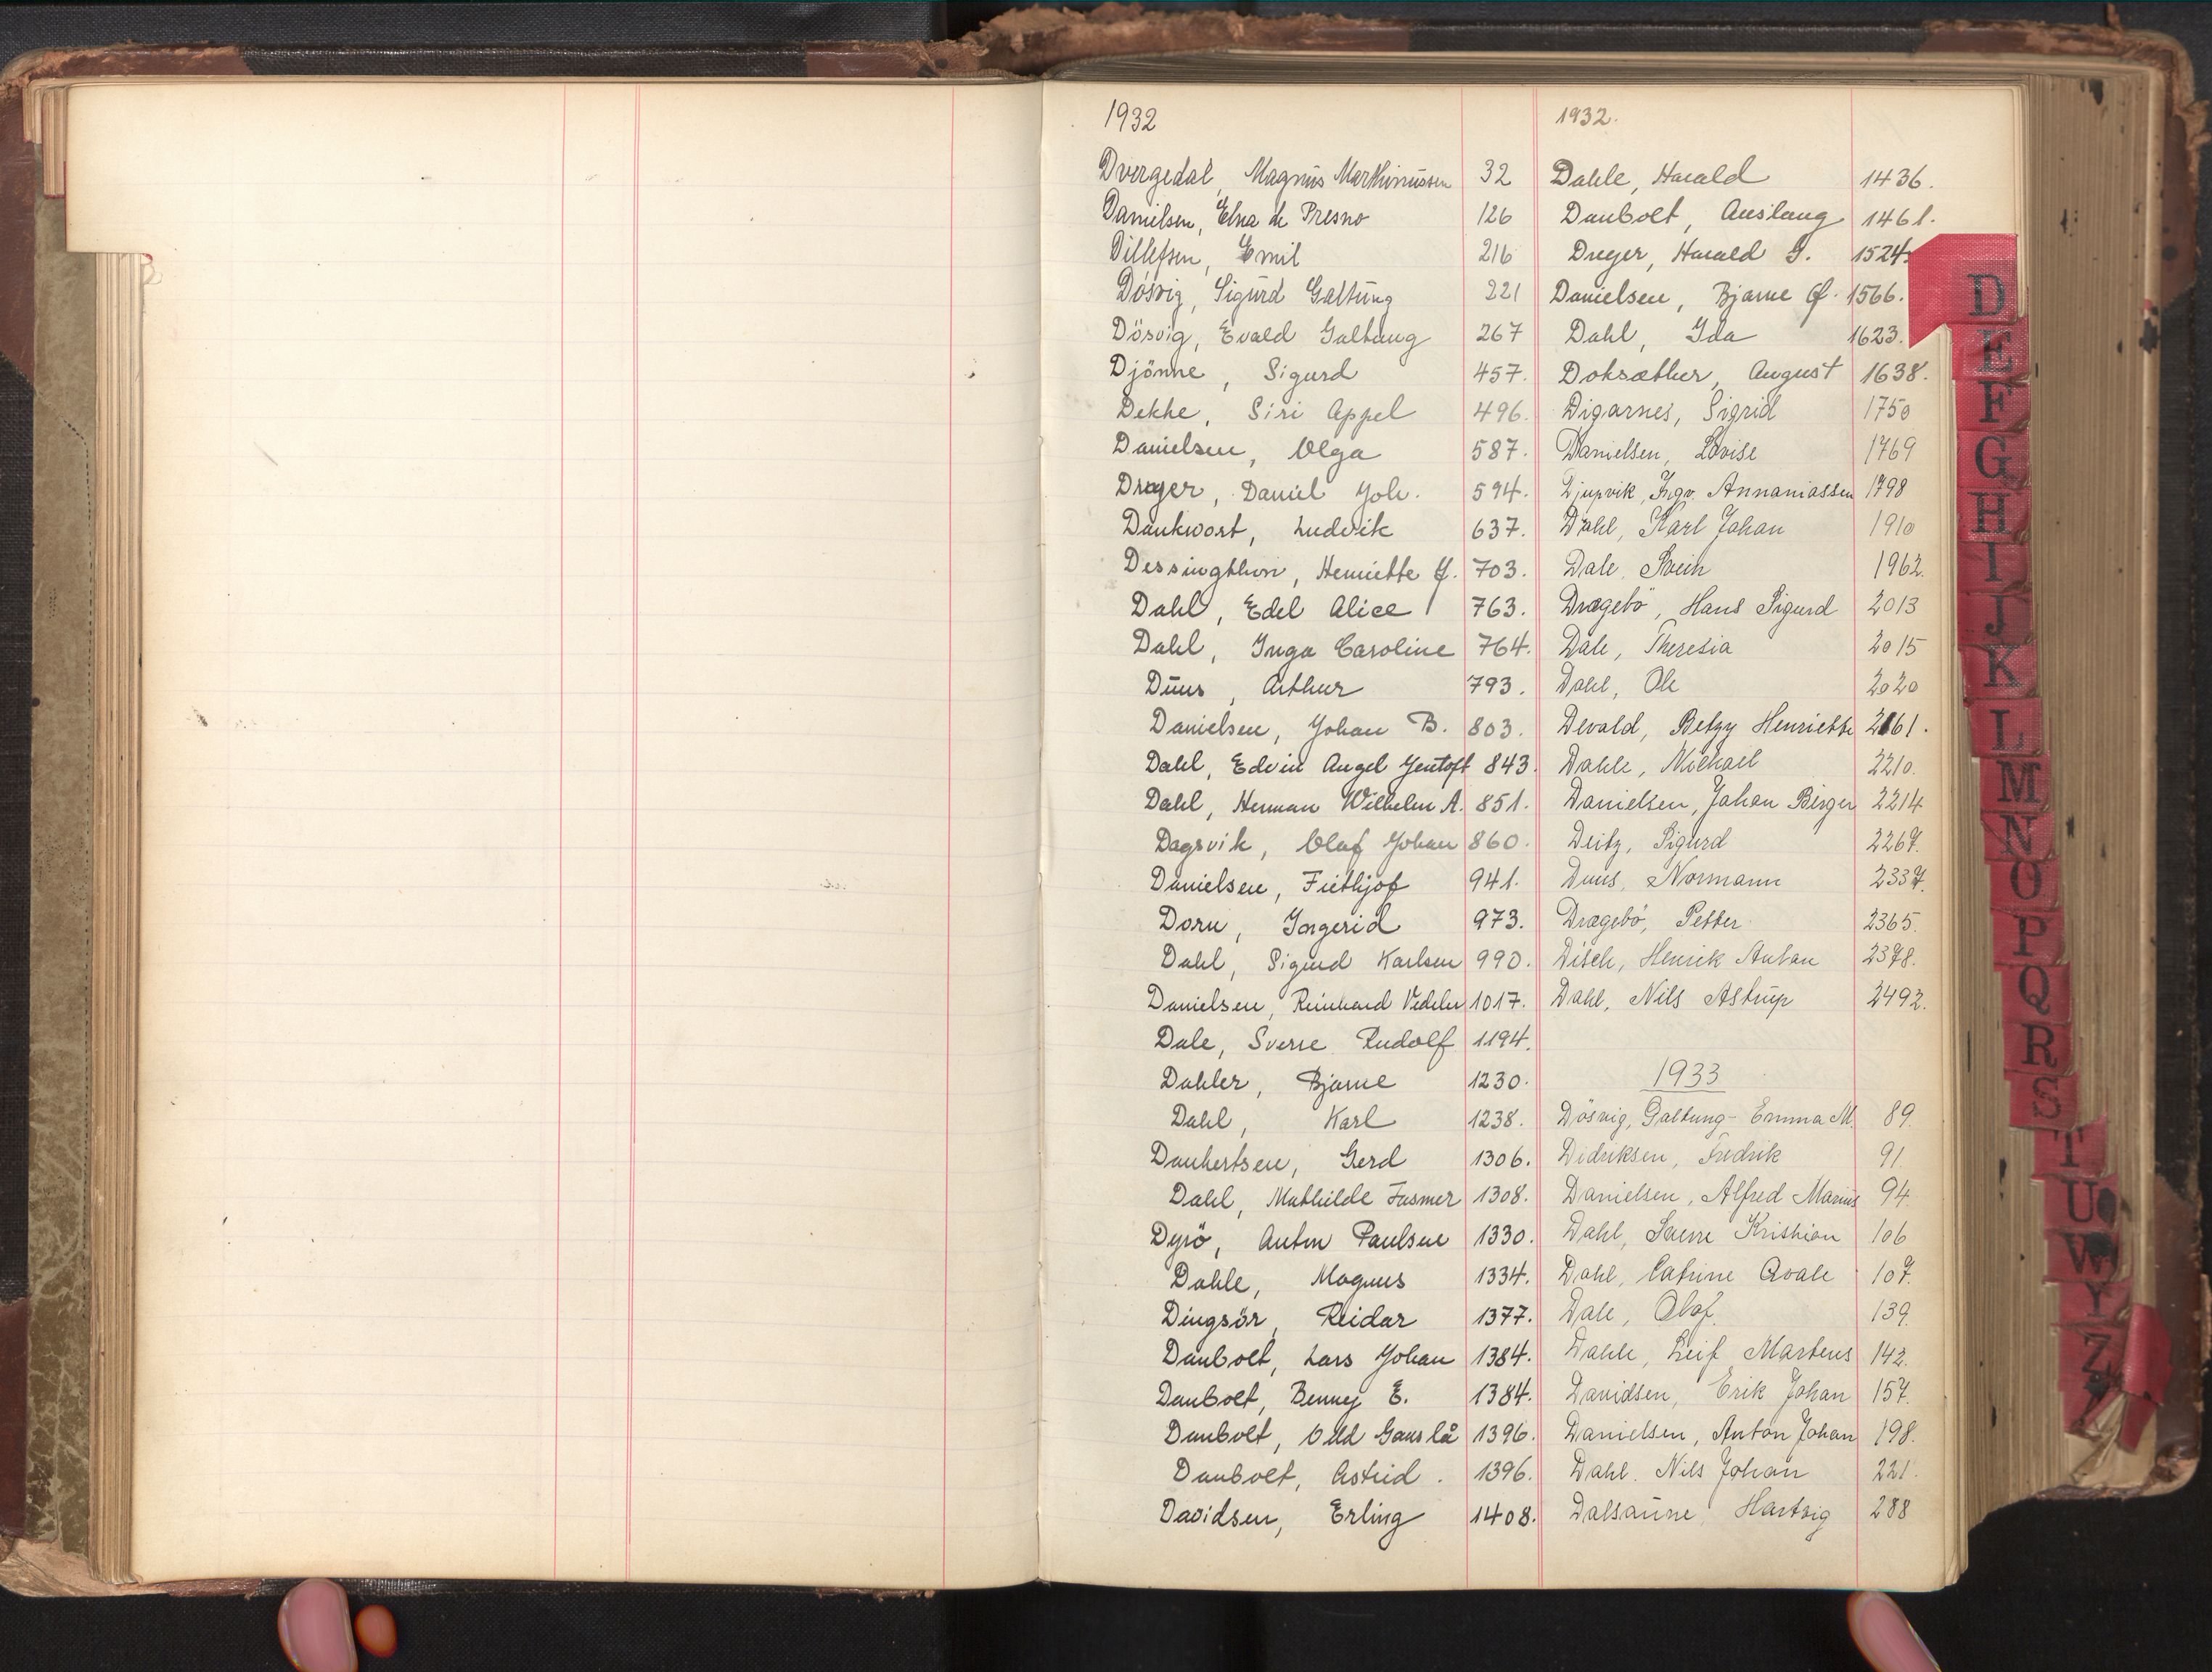 1932
Dvergedal, Magnus Marthinussen 32
Danielsen, Elna de Presno 126
Dillefsen, Emil 216
Dösvig, Sigurd Galtung 221
Dösvig, Evald Galtung 267
Djönne, Sigurd 457.
Dekke, Siri Appel 496.
Danielsen, Olga 587.
Dreyer, Daniel Joh. 594.
Dankwort, Ludvik 637.
Dessingthon, Henriette J. 703.
Dahl, Edel Alice 763.
Dahl, Inga Caroline 764.
Duus, Arthur 793.
Danielsen, Johan B. 803.
Dahl, Edvin Angel Jentoft 843.
Dahl, Herman Wilhelm A. 851.
Dagsvik, Olaf Johan 860.
Danielsen, Fiethjof 941.
Dorn, Ingerid 973.
Dahl, Sigurd Karlsen 990.
Danielsen, Reinhard Vedeler 1017.
Dale, Sverre Rudolf 1194.
Dahler, Bjarne 1230.
Dahl, Karl 1238.
Dankertsen, Gerd 1306.
Dahl, Mathilde Fasmer 1308.
Dyrö, Anton Paulsen 1330.
Dahle, Magnus 1334.
Dingsör, Reidar 1377.
Danbolt, Lars Johan 1384.
Danbolt, Benney E. 1384.
Danbolt, Odd Gauslå 1396.
Danbolt, Astrid. 1396.
Davidsen, Erling 1408.
1932.
Dahle, Harald 1436.
Danbolt, Auslaug 1461.
Dreyer, Harald S. 1524.
Danielsen, Bjarne Gf. 1566.
Dahl, Ida 1623.
Doksæther, August 1638.
Digarnes, Sigrid 1750
Danielsen, Lovise 1769
Djupvik, Ingv. Annaniassen 1798
Dahl, Karl Johan 1910
Dale Svein 1962.
Drægebö, Hans Sigurd 2013
Dale, Theresia 2015
Dahl, Ole 2020
Devold, Betzy Henriette 2161.
Dahle, Michael 2210.
Danielsen, Johan Birger 2214
Deitz, Sigurd 2267.
Duus, Normann 2337.
Drægebö, Petter 2365.
Disch, Henrik Anton 2378.
Dahl, Nils Astrup 2492.
1933
Dösvig, Galtung- Emma M. 89.
Didriksen, Fredrik 91.
Danielsen, Alfred Marius 94.
Dahl, Sverre Kristian 106
Dahl, Catrine Qvale 107.
Dale, Olaf. 139.
Dahle, Leif Martens 142.
Davidsen, Erik Johan 157.
Danielsen, Anton Johan 198.
Dahl. Nils Johan 221.
Dalsaune, Hartvig 288
D
E
F
G
H
I
J
K
L
M
N
O
P
Q
R
S
T
U
W
Y
Z